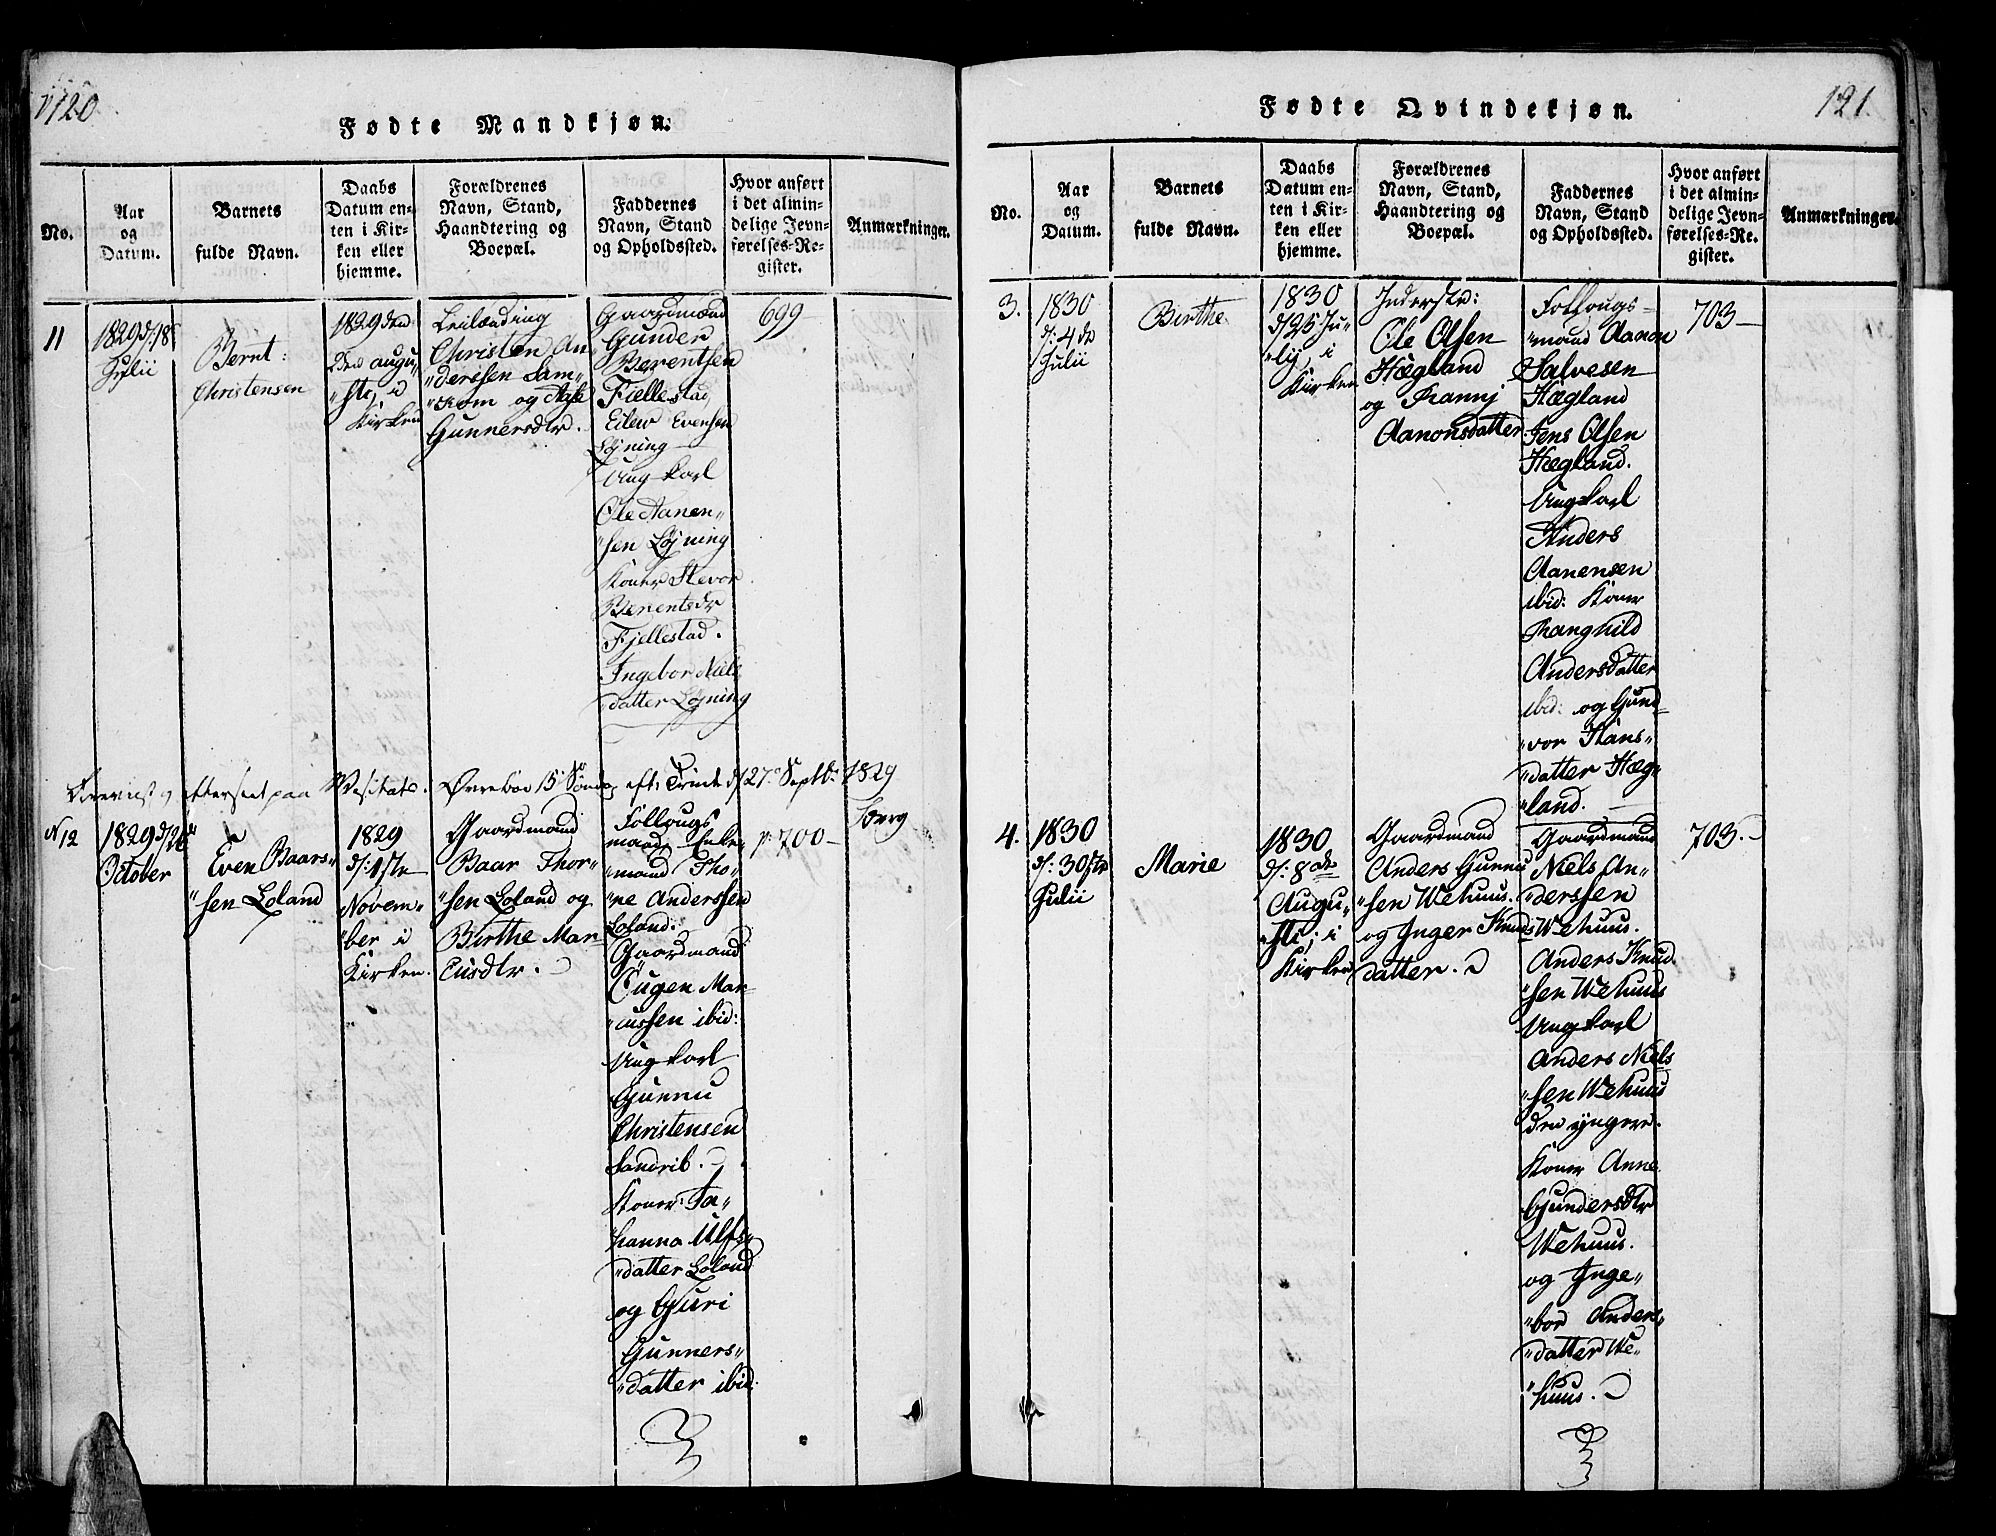 120
Fødte Mandkjøn.
No.
Aar
og
Datum.
Barnets
fulde Navn.
Daabs
Datum en-
ten i Kir-
ken eller
hjemme.
Forældrenes
Navn, Stand,
Haandtering og
Boepæl.
Faddernes
Navn, Stand
og Opholdssted.
Hvor anført
i det almin-
delige Jevn-
førelses-Re-
gister.
Anmærkninger.
11
1829 d/18
Julii
Bernt
Christensen
1829 den
2den augu-
"sti, i
Kirken
Leilænding
Christen An-
"dersen Sam-
"kom og
Gunnersdtr.
Gaardmænd
Gunder
Berentsen
Fjellestad,
Eilew Evensen
Løjning
Ungkarl
Ole Aanen-
"sen Løjning
Koner Stevor
Berentsdr
Fjellestad.
Ingebor Niels
datter Løjning
699
og efterseet paa Visitats. Øvrebøe 15 Søndag eft. Trinit. d/27. Septbr 1829
N 12
1829 d/26de
October
Even Baars-
"sen Loland
1829
d: 1ste
Novem-
"ber i
Kirken.
Gaardmand
Baar Thor-
"sen Loland og
Birthe Mar-
cusdtr.
Follougs
mænd, Enke-
"mand Tho-
"ne Anderssen
Loland.
Gaardmand
Eugen Mar-
"cussen ibid:
Ungkarl
Gunnu
Christensen
Sandrib.
Koner: Jo-
hanna Ulfs-
"datter Loland
og Guri
Gunners-
"datter ibid:
p. 700
121.
Fødte Qvindekjøn.
No.
Aar
og
Datum.
Barnets
fulde Navn.
Daabs
Datum en-
ten i Kir-
ken eller
hjemme.
Forældrenes
Navn, Stand,
Haandtering og
Boepæl.
Faddernes
Navn, Stand
og Opholdssted.
Hvor anført
i det almin-
delige Jevn-
førelses-Re-
gister.
Anmærkninger.
3.
1830
d: 4de
Julii
Birthe
1830
d/25 Ju-
"ly, i
Kirken
Inderstr:
Ole Olsen
Hægland
og Ranny
Aanonsdatter
Follougs-
"mand Aanon
Salvesen
Hægland
Jens Olsen
Hægland.
Ungkarl
Anders
Aanensen
ibid: Koner
Rangnild
Andersdatter
ibid: og Gund-
"vor Hans-
"datter Hæg-
"land.
703
4.
1830
d: 30te
Julii
Marie
1830
d: 8de
Augu-
"sti, i
Kirken
Gaardmand
Anders Gunnu
"sen Wehuus.
og Inger Knuds
datter.
Gaardmand
Niels An-
"derssen
Wehuus.
Anders Knud
"sen Wehuus
Ungkarl
Anders Niels
"sen Wehuus
den yngere.
Koner Anne
Gundersdtr
Wehuus.
og Inge-
"bor Anders-
"datter We-
"huus.
703.